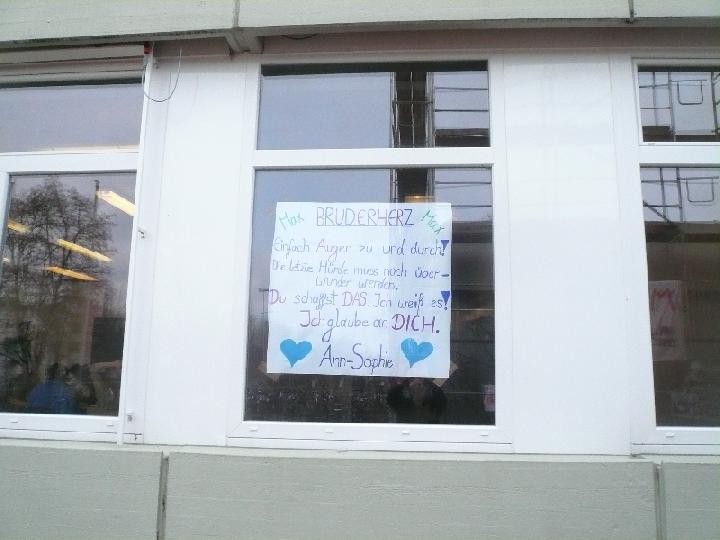 Max BRUDERHERZ Max
Einfach Augen zu und durch!
Die letzte Hürde muss noch über-
wunden werden.
Du schaffst DAS. Ich weiß es!
Ich glaube an DICH.
Ann-Sophie